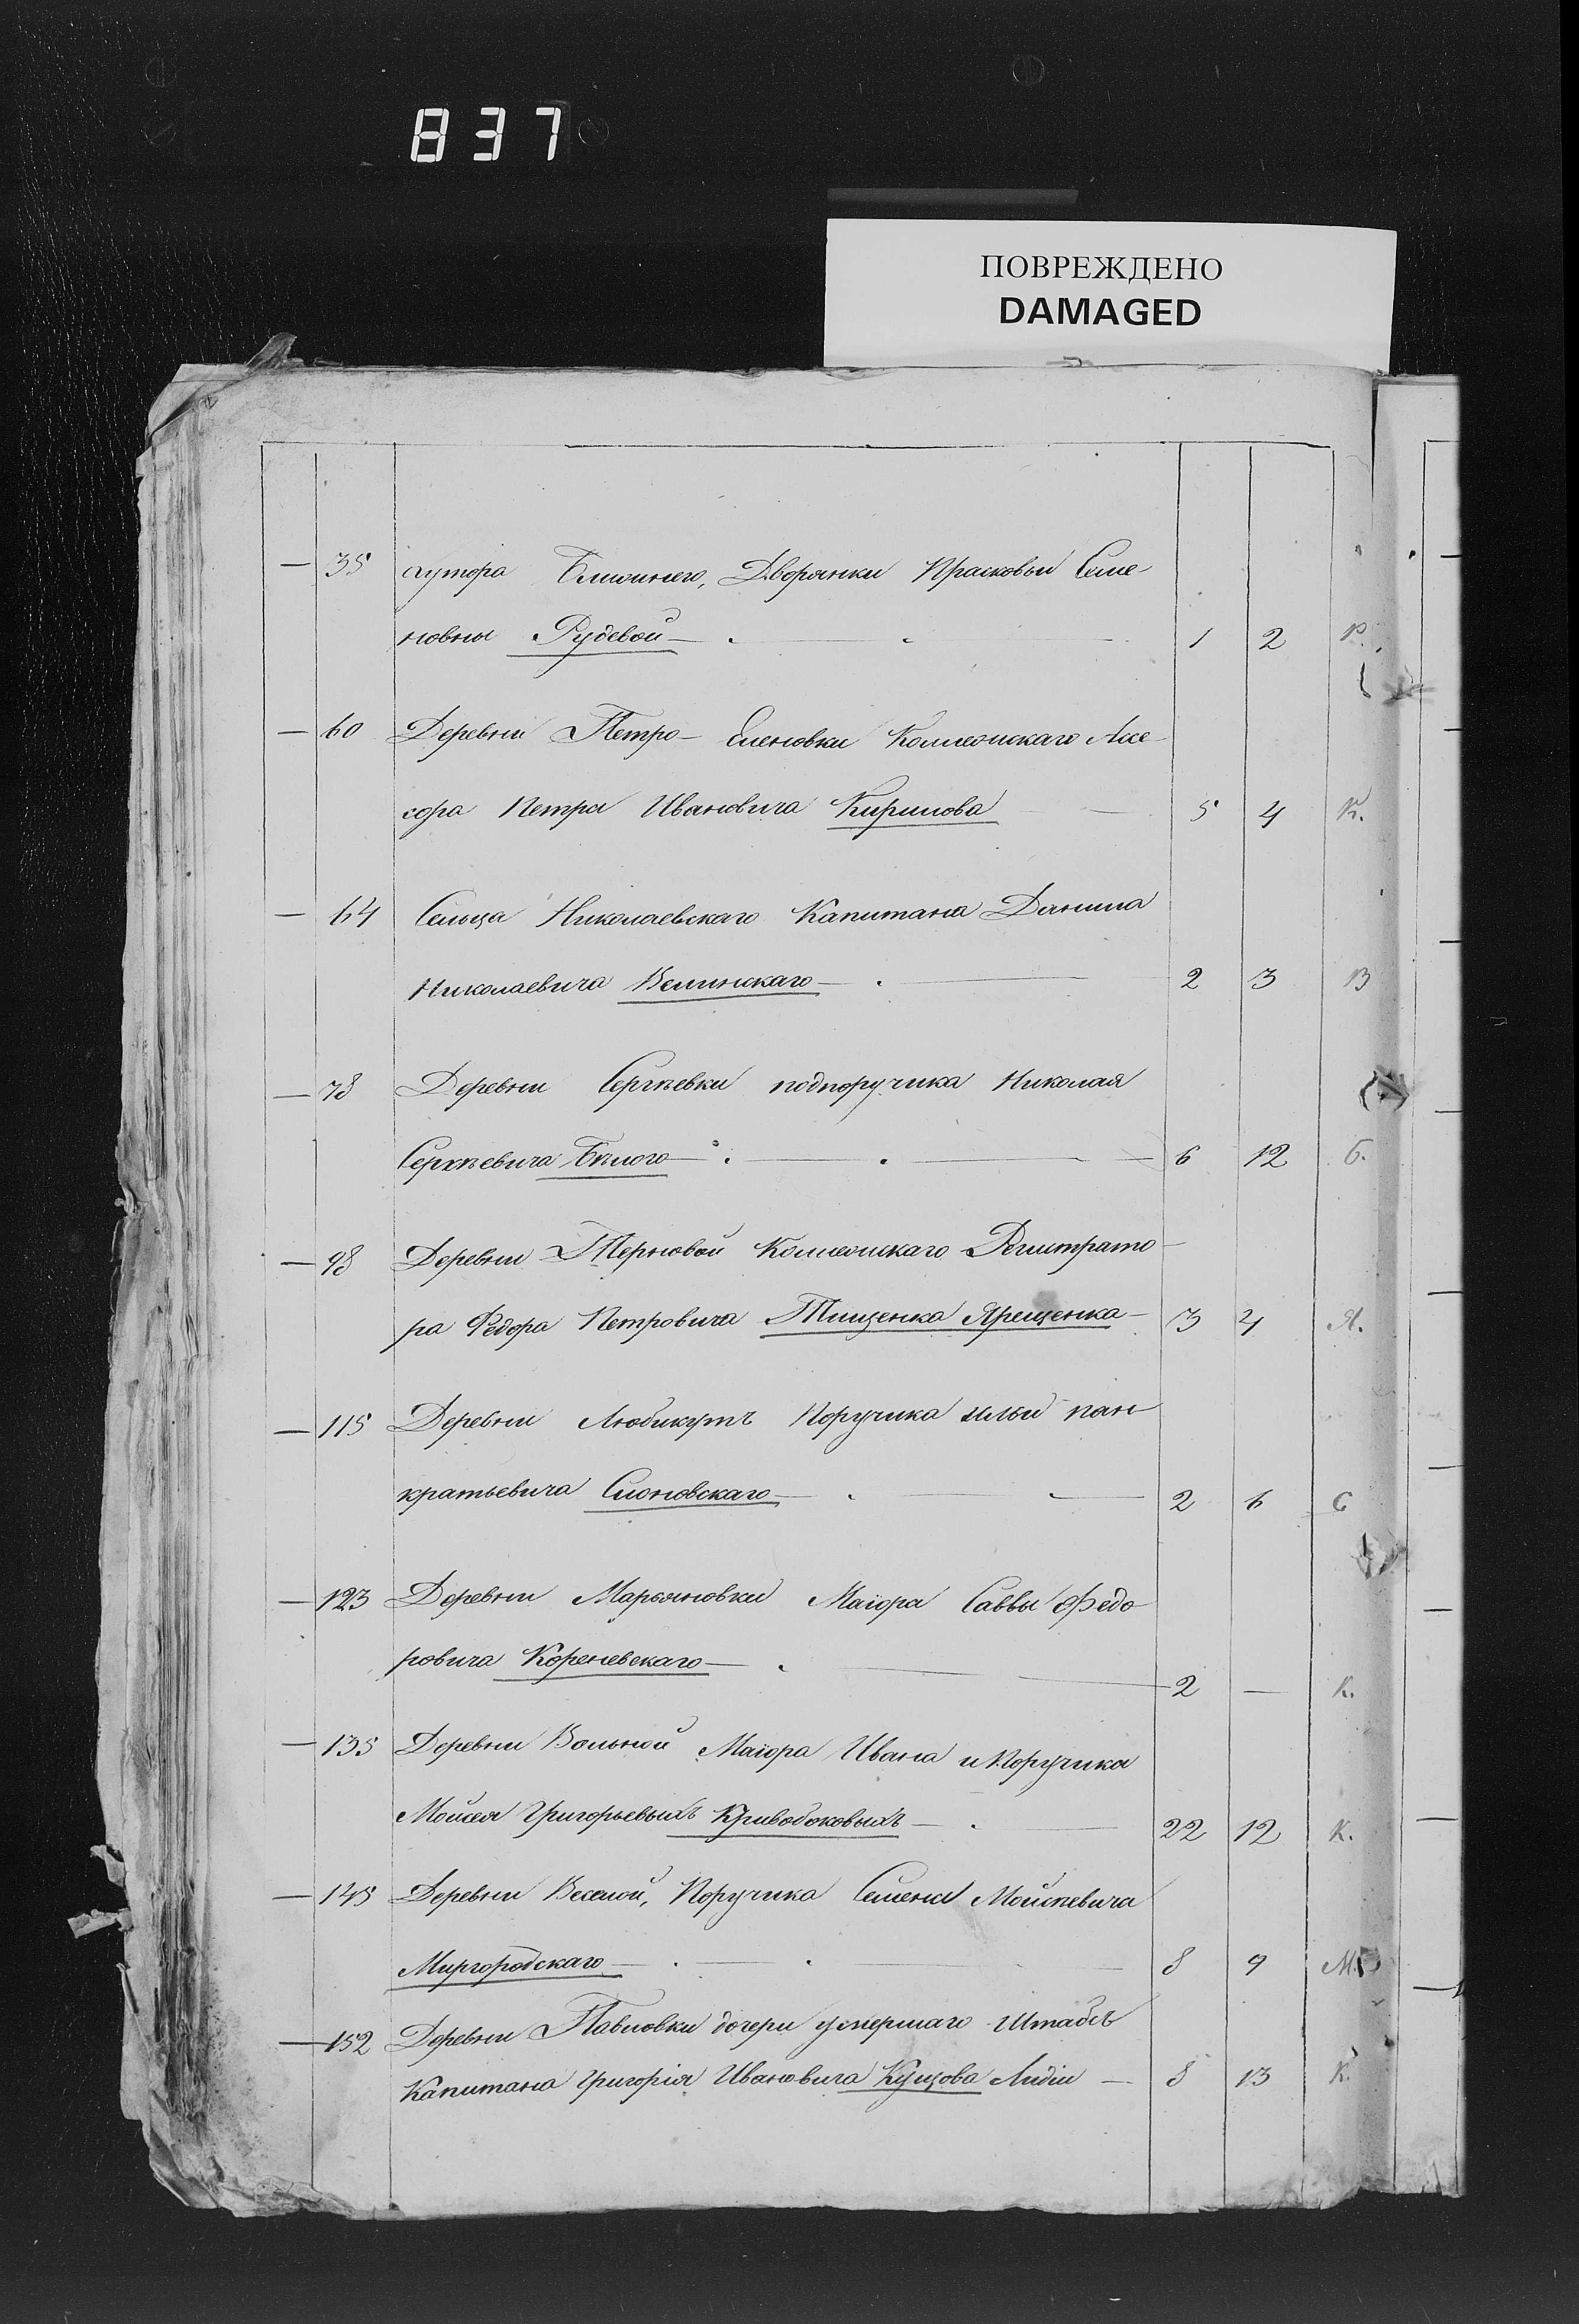 837
ПОВРЕЖДЕНО
DAMAGED
— 35 хутора Ближнего, Дворянки Прасковьи Семе-
новны Рудевой — 1 2 Р.
— 60 Деревни Петро-Еленовки Коллежскаго Ассе-
сора Петра Ивановича Кирилова — 5 4 К.
— 64 Сельца Николаевскаго Капитана Данила
Николаевича Велинскаго — 2 3 В
— 78 Деревни Сергѣевки подпоручика Николая
Сергѣевича Бѣлого — 6 12 Б.
— 98 Деревни Терновой Коллежскаго Регистрато-
ра Федора Петровича Тищенка Ярещенка — 3 4 Я.
— 115 Деревни Любикутъ Поручика Ильи Пан-
кратьевича Слоновскаго — 2 6 С
— 123 Деревни Марьяновки Маіора Саввы Федо-
ровича Кореневскаго — 2 — К.
— 135 Деревни Вольной Маіора Ивана и Поручика
Мойсея Григорьевыхъ Кривобоковыхъ — 22 12 К.
— 145 Деревни Веселой, Поручика Семена Мойсѣевича
Миргородскаго — 8 9 М.
— 152 Деревни Павловки дочери умершаго Штабсъ
Капитана Григорія Ивановича Кущова Лидіи — 8 13 К.